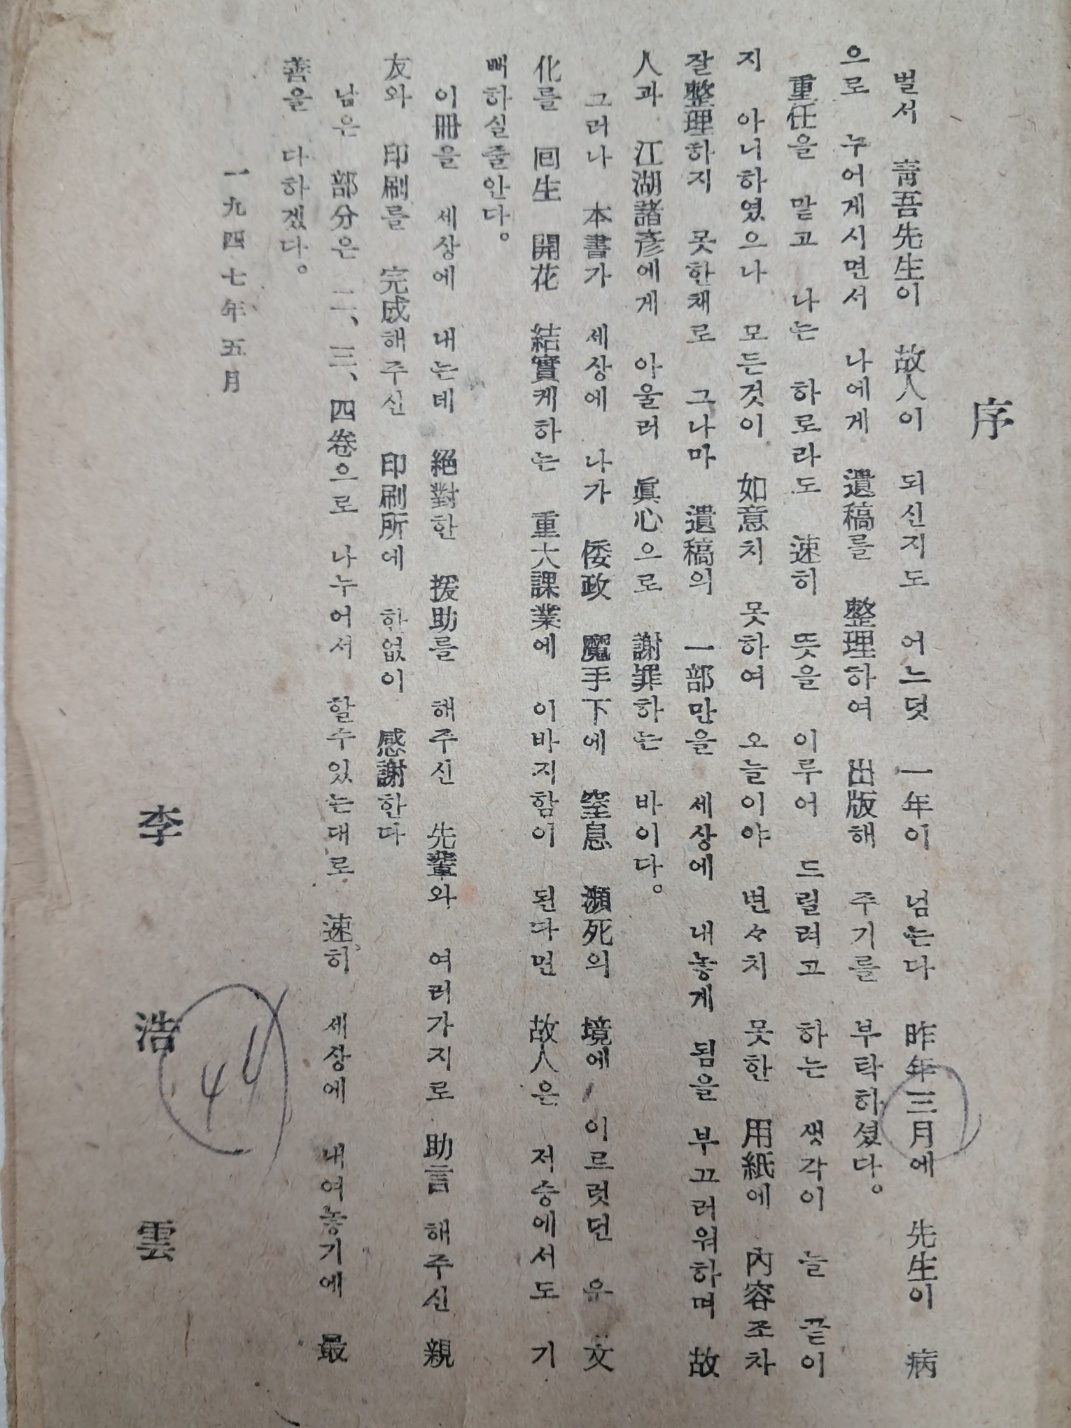 序
벌서 靑吾先生이 故人이 되신지도 어느덧 一年이 넘는다 昨年三月에 先生이 病
으로 누어게시면서 나에게 遺稿를 整理하여 出版해 주기를 부탁하셨다。
重任을 맡고 나는 하로라도 速히 뜻을 이루어 드릴려고 하는 생각이 늘 끝이
지 아니하였으나 모든것이 如意치 못하여 오늘이야 변々치 못한 用紙에 內容조차
잘整理하지 못한채로 그나마 遺稿의 一部만을 세상에 내놓게 됨을 부끄러워하며 故
人과 江湖諸彦에게 아울러 眞心으로 謝罪하는 바이다。
그러나 本書가 세상에 나가 倭政 魔手下에 窒息 瀕死의 境에 이르럿던 우 文
化를 回生 開花 結實케하는 重大課業에 이바지함이 된다면 故人은 저승에서도 기
뻐하실줄안다。
이冊을 세상에 내는데 絕對한 援助를 해주신 先輩와 여러가지로 助言 해주신 親
友와 印刷를 完成해주신 印刷所에 한없이 感謝한다
남은 部分은 二、三、四卷으로 나누어서 할수있는대로 速히 세상에 내여놓기에 最
善을 다하겠다。
一九四七年五月
李 浩 雲
44